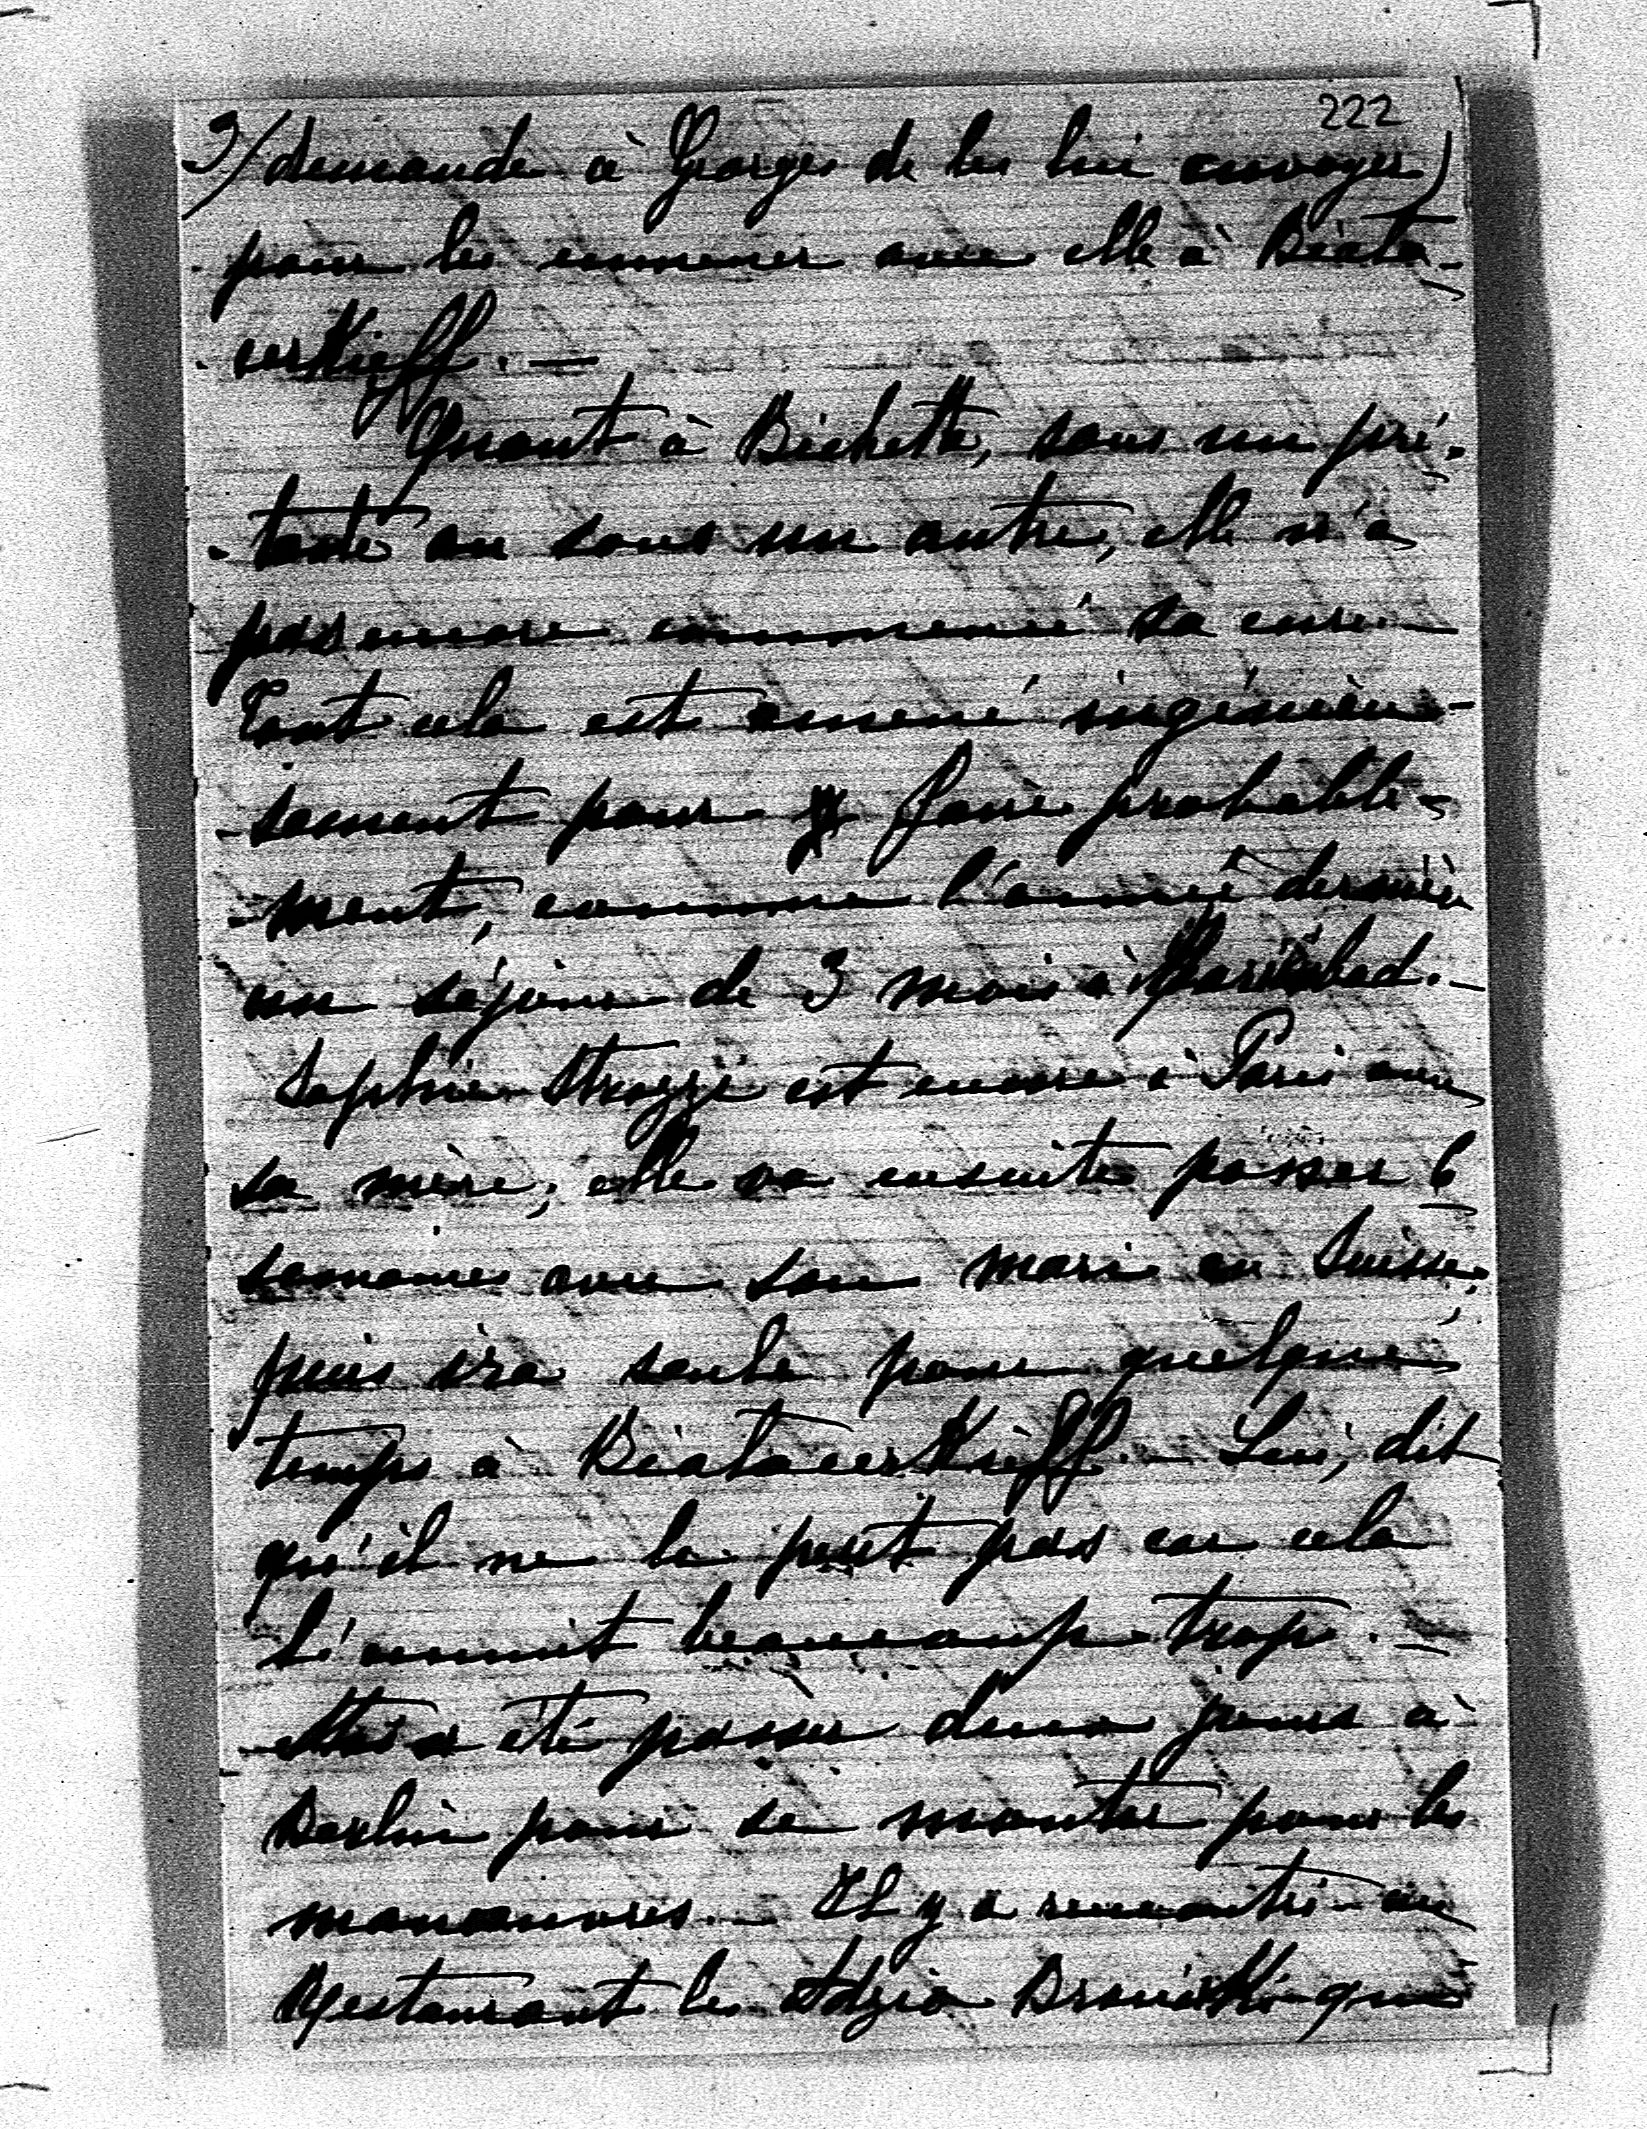 222
3/ demande à Georges de les lui envoyer
pour les emmener avec elle à Biała-
-cerKieff. —
Quant à Bichette, sous un pré-
-texte ou sous un autre, elle n'a
pas encore commencé sa cure —
Tout cela est amené ingénieu-
-sement pour y faire probable-
-ment, comme l'année dernière
un séjour de 3 mois à Marienbad. —
Sophie Strozzi est encore à Paris avec
sa mère; elle va ensuite passer 6
semaines avec son mari en Suisse,
puis ira seule pour quelque
temps à BialacerKieff. — Lui, dit
qu'il ne le peut pas car cela
l'ennuit beaucoup trop. —
a été passer deux jours à
Berlin pour se monter pour les
manœuvres. — Il y a rencontré au
Restaurant les Adzio BranicKi qui